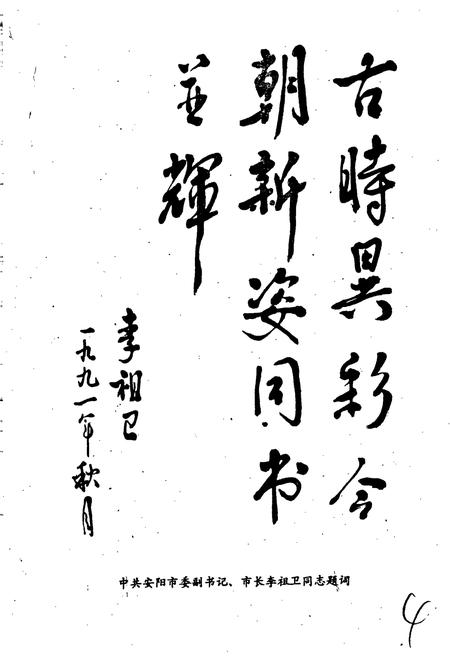 古時異彩今
朝新姿同书
並輝
李祖卫
一九九一年秋月
中共安阳市委副书记、市长李祖卫同志题词
4